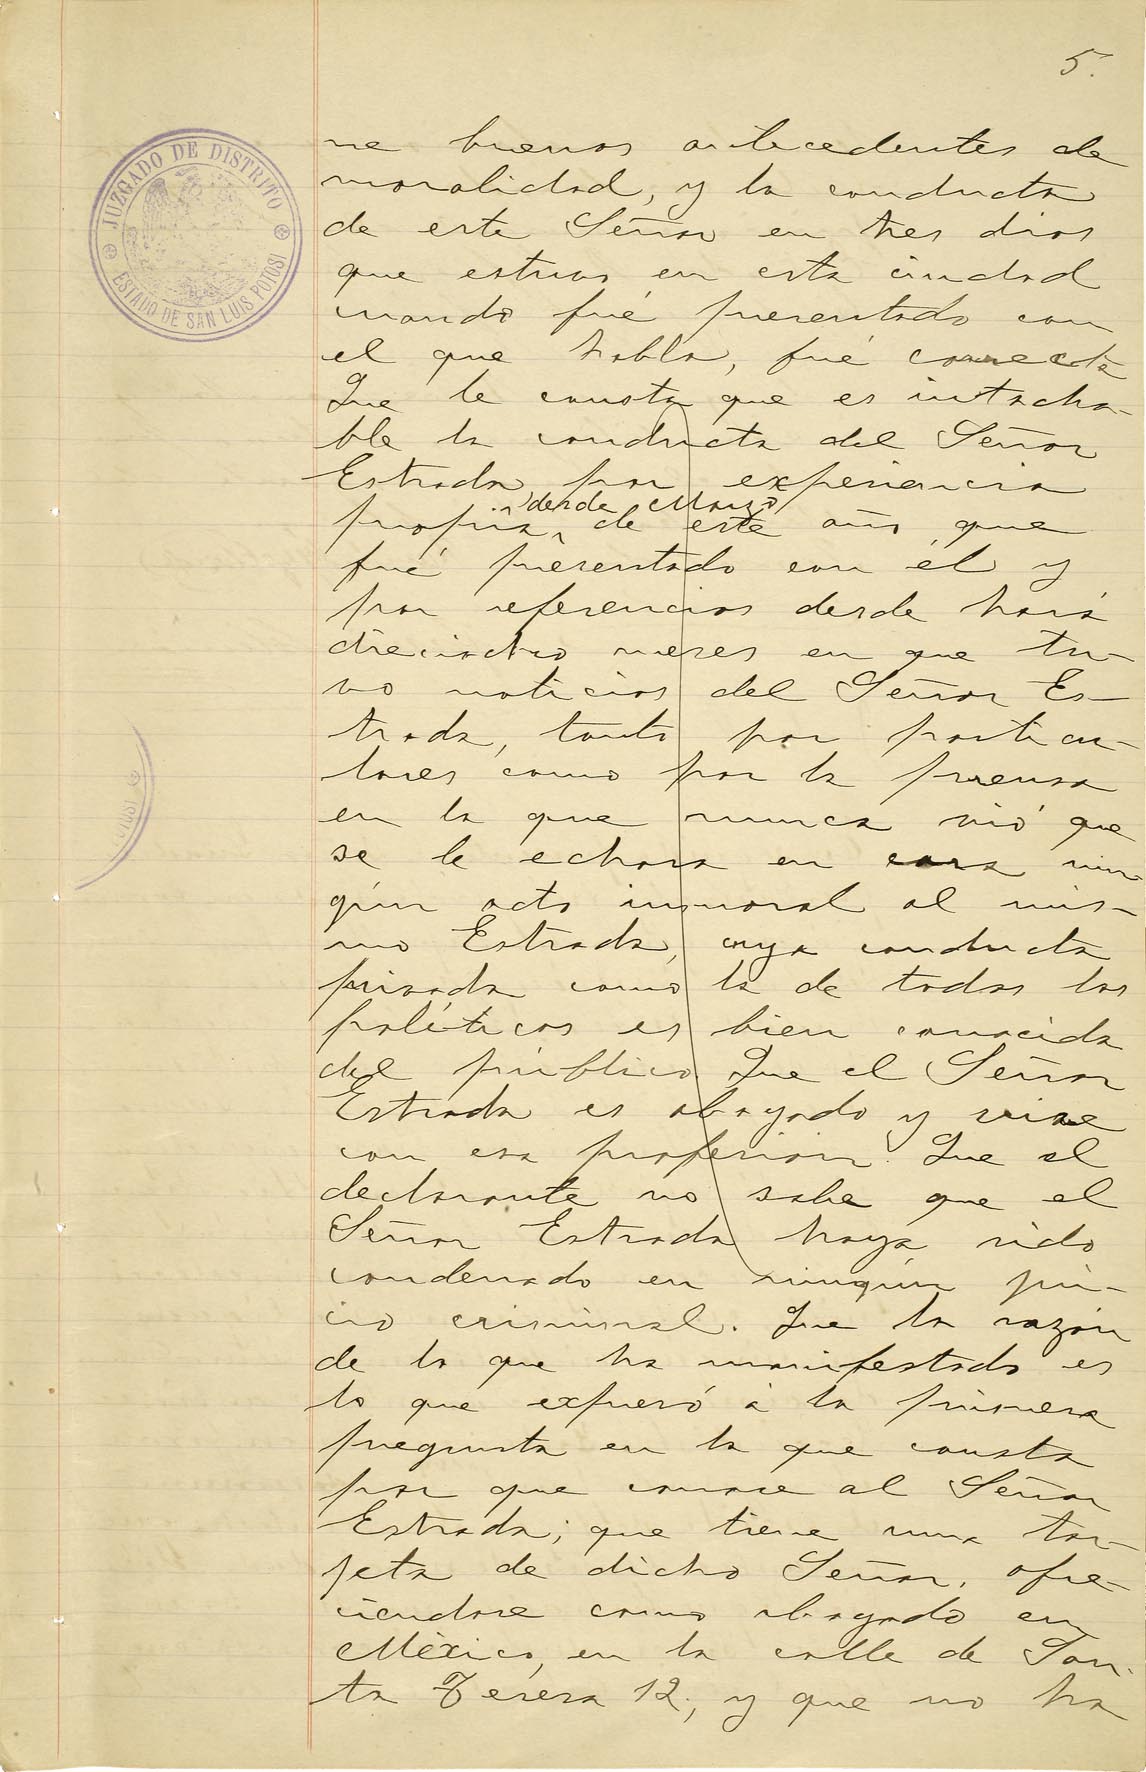 5.
JUZGADO DE DISTRITO
ESTADO DE SAN LUIS POTOSI
ne buenos antecedentes de
moralidad, y la conducta
de este Señor en tres dias
que estuvo en esta ciudad
cuando fué presentado con
el que habla, fué correcta
Que le consta que es intacha-
ble la conducta del Señor
Estrada por experiencia
desde Marzo
propia, de este año que
fué presentado con él y
por referencias desde hará
dieciocho meses en que tu-
vo noticias del Señor Es-
trada, tanto por particu-
lares como por la prensa
en la que nunca vió que
se le echara en cara nin-
gún acto inmoral al mis-
mo Estrada, cuya conducta
privada como la de todos los
políticos es bien conocida
del público. Que el Señor
Estrada es abogado y vive
con esa profesion. Que el
declarante no sabe que el
Señor Estrada haya sido
condenado en ningún jui-
cio criminal. Que la razón
de lo que ha manifestado es
lo que expuso á la primera
pregunta en la que consta
por que conoce al Señor
Estrada; que tiene una tar-
jeta de dicho Señor, ofre-
ciendose como abogado en
México, en la calle de San-
ta Teresa 12., y que no ha